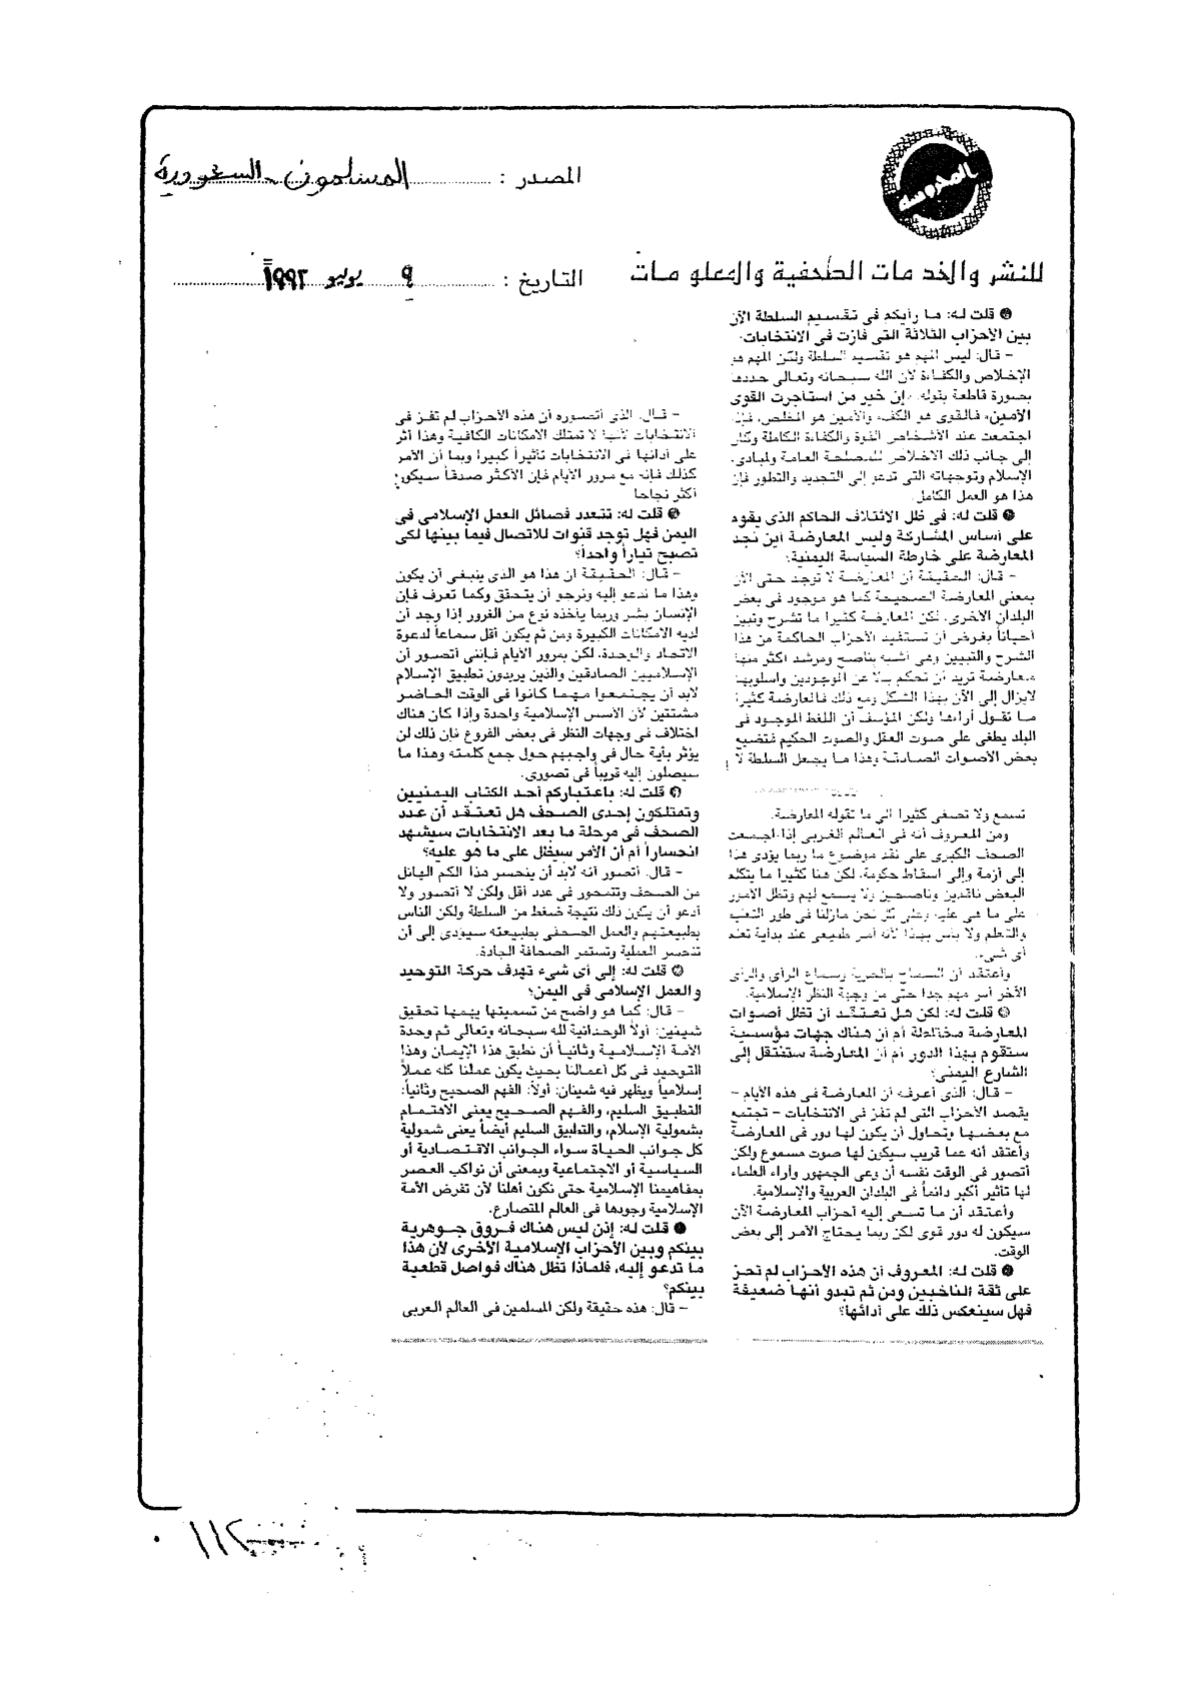 المحروسة
المصدر : المسلمون - السعودية
للنشر والخدمات الصحفية والمعلومات
التاريخ : ٩ يوليو ١٩٩٣
● قلت له: ما رأيكم فى تقسيم السلطة الآن
بين الأحزاب الثلاثة التى فازت فى الانتخابات.
– قال: ليس المهم هو تقسيم السلطة ولكن المهم هو
الإخلاص والكفاءة لأن الله سبحانه وتعالى حددها
بصورة قاطعة بقوله «إن خير من استأجرت القوى
الأمين» فالقوى هو الكفء والأمين هو المخلص، فإذا
اجتمعت عند الأشخاص القوة والكفاءة الكاملة وكان
إلى جانب ذلك الاخلاص للمصلحة العامة ولمبادىء
الإسلام وتوجهاته التى تدعو إلى التجديد والتطور فإن
هذا هو العمل الكامل.
● قلت له: فى ظل الائتلاف الحاكم الذى يقوم
على أساس المشاركة وليس المعارضة أين نجد
المعارضة على خارطة السياسة اليمنية؟
– قال: الحقيقة أن المعارضة لا توجد حتى الآن
بمعنى المعارضة الصحيحة كما هو موجود فى بعض
البلدان الأخرى، لكن المعارضة كثيرا ما تشرح وتبين
أحياناً بغرض أن تستفيد الأحزاب الحاكمة من هذا
الشرح والتبيين وهى أشبه بناصح ومرشد أكثر منها
معارضة تريد أن تحكم بدلا عن الموجودين واسلوبها
لايزال إلى الآن بهذا الشكل ومع ذلك فالمعارضة كثيرا
ما تقول أراءها ولكن المؤسف أن اللغط الموجود فى
البلد يطغى على صوت العقل والصوت الحكيم فتضيع
بعض الأصوات الصادقة وهذا ما يجعل السلطة لا
تسمع ولا تصغى كثيرا الى ما تقوله المعارضة.
ومن المعروف أنه فى العالم الغربى إذا اجتمعت
الصحف الكبرى على نقد موضوع ما ربما يؤدى هذا
إلى أزمة وإلى اسقاط حكومة، لكن هنا كثيرا ما يتكلم
البعض ناقدين وناصحين ولا يسمع لهم وتظل الأمور
على ما هى عليه وعلى كل نحن مازلنا فى طور التعليم
والتعلم ولا بأس بهذا لأنه أمر طبيعى عند بداية تعلم
أى شىء.
وأعتقد أن السماح بالحرية وسماع الرأى والرأى
الآخر أمر مهم جدا حتى من وجهة النظر الإسلامية.
● قلت له: لكن هل تعتقد أن تظل أصوات
المعارضة مختلطة أم أن هناك جهات مؤسسية
ستقوم بهذا الدور أم أن المعارضة ستنتقل إلى
الشارع اليمنى؟
– قال: الذى أعرفه أن المعارضة فى هذه الأيام –
يقصد الأحزاب التى لم تفز فى الانتخابات – تجتمع
مع بعضها وتحاول أن يكون لها دور فى المعارضة
وأعتقد أنه عما قريب سيكون لها صوت مسموع ولكن
أتصور فى الوقت نفسه أن وعى الجمهور وآراء العلماء
لها تأثير أكبر دائماً فى البلدان العربية والإسلامية.
وأعتقد أن ما تسعى إليه أحزاب المعارضة الآن
سيكون له دور قوى لكن ربما يحتاج الأمر إلى بعض
الوقت.
● قلت له: المعروف أن هذه الأحزاب لم تحز
على ثقة الناخبين ومن ثم تبدو أنها ضعيفة
فهل سينعكس ذلك على أدائها؟
– قال: الذى أتصوره أن هذه الأحزاب لم تفز فى
الانتخابات لأنها لا تمتلك الامكانات الكافية وهذا أثر
على أدائها فى الانتخابات تأثيراً كبيرا وبما أن الأمر
كذلك فإنه مع مرور الأيام فإن الأكثر صدقاً سيكون
أكثر نجاحا
● قلت له: تتعدد فصائل العمل الإسلامى فى
اليمن فهل توجد قنوات للاتصال فيما بينها لكى
تصبح تياراً واحداً؟
– قال: الحقيقة ان هذا هو الذى ينبغى أن يكون
وهذا ما ندعو إليه ونرجو أن يتحقق وكما تعرف فإن
الإنسان بشر وربما يأخذه نوع من الغرور إذا وجد أن
لديه الامكانات الكبيرة ومن ثم يكون أقل سماعاً لدعوة
الاتحاد والوحدة، لكن بمرور الأيام فإننى أتصور أن
الإسلاميين الصادقين والذين يريدون تطبيق الإسلام
لابد أن يجتمعوا مهما كانوا فى الوقت الحاضر
مشتتين لأن الأسس الإسلامية واحدة وإذا كان هناك
اختلاف فى وجهات النظر فى بعض الفروع فإن ذلك لن
يؤثر بأية حال فى واجبهم حول جمع كلمته وهذا ما
سيصلون إليه قريباً فى تصورى.
● قلت له: باعتباركم أحد الكتاب اليمنيين
وتمتلكون إحدى الصحف هل تعتقد أن عدد
الصحف فى مرحلة ما بعد الانتخابات سيشهد
انحساراً أم أن الأمر سيظل على ما هو عليه؟
– قال: أتصور أنه لابد أن ينحسر هذا الكم الهائل
من الصحف وتتمحور فى عدد أقل ولكن لا أتصور ولا
أدعو أن يكون ذلك نتيجة ضغط من السلطة ولكن الناس
بطبيعتهم والعمل الصحفى بطبيعته سيؤدى إلى أن
تنحسر العملية وتستمر الصحافة الجادة.
● قلت له: إلى أى شىء تهدف حركة التوحيد
والعمل الإسلامى فى اليمن؟
– قال: كما هو واضح من تسميتها يهمها تحقيق
شيئين: أولاً الوحدانية لله سبحانه وتعالى ثم وحدة
الأمة الإسلامية وثانياً أن نطبق هذا الإيمان وهذا
التوحيد فى كل أعمالنا بحيث يكون عملنا كله عملاً
إسلامياً ويظهر فيه شيئان: أولاً: الفهم الصحيح وثانياً:
التطبيق السليم، والفهم الصحيح يعنى الاهتمام
بشمولية الإسلام، والتطبيق السليم أيضاً يعنى شمولية
كل جوانب الحياة سواء الجوانب الاقتصادية أو
السياسية أو الاجتماعية وبمعنى أن نواكب العصر
بمفاهيمنا الإسلامية حتى نكون أهلنا لأن تفرض الأمة
الإسلامية وجودها فى العالم المتصارع.
● قلت له: إذن ليس هناك فروق جوهرية
بينكم وبين الأحزاب الإسلامية الأخرى لأن هذا
ما تدعو إليه، فلماذا تظل هناك فواصل قطعية
بينكم؟
– قال: هذه حقيقة ولكن المسلمين فى العالم العربى